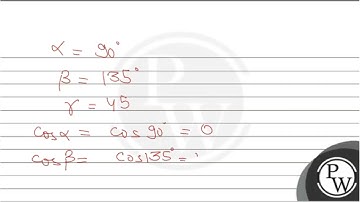 α = 90°
β = 135°
γ = 45
cosα = cos 90° = 0
cosβ = cos135° =
PW
PW